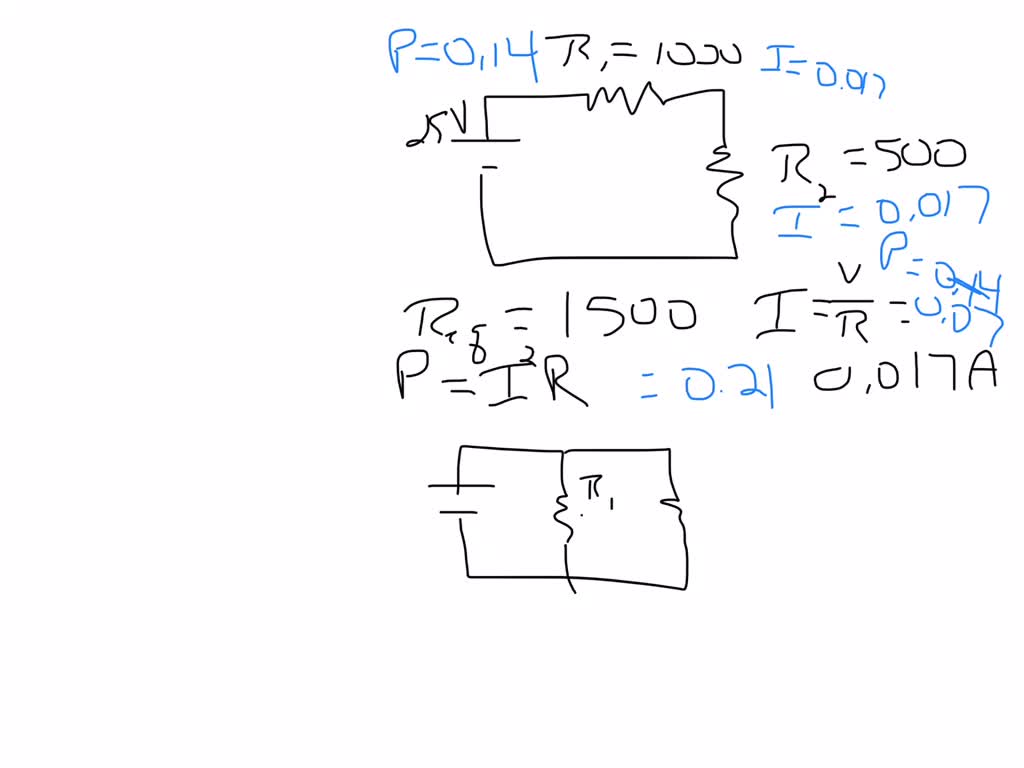 P=0,14 R₁=1000 I=0.017
25V
R₂ =500
I = 0,017
P=0,14
R =1500 I=V/R=0,07
P=I²R =0.21 0,017A
R₁